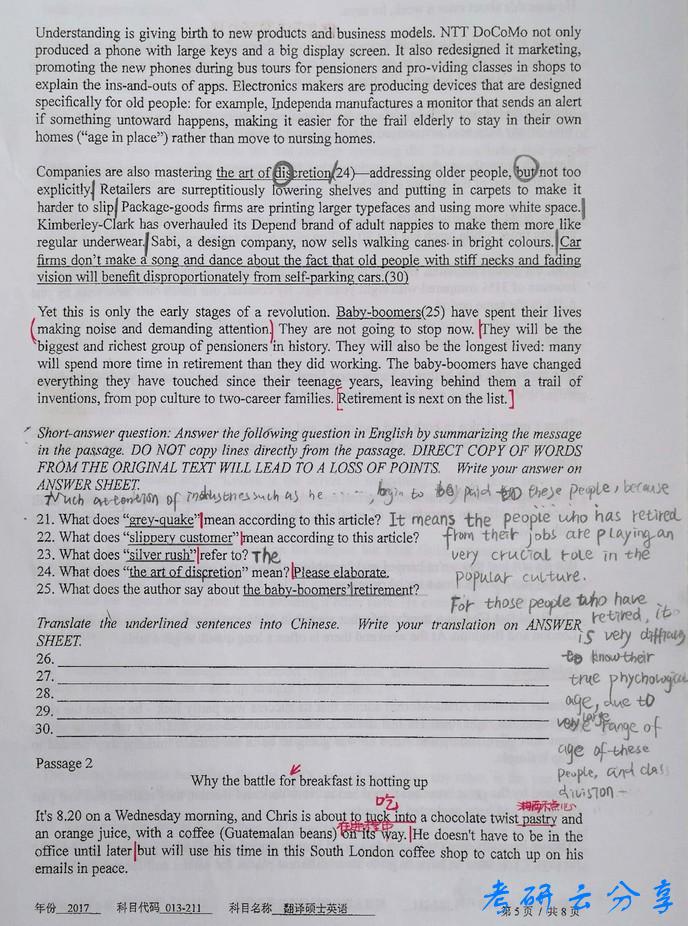 Understanding is giving birth to new products and business models. NTT DoCoMo not only
produced a phone with large keys and a big display screen. It also redesigned it marketing,
promoting the new phones during bus tours for pensioners and pro-viding classes in shops to
explain the ins-and-outs of apps. Electronics makers are producing devices that are designed
specifically for old people: for example, Independa manufactures a monitor that sends an alert
if something untoward happens, making it easier for the frail elderly to stay in their own
homes (“age in place”) rather than move to nursing homes.
Companies are also mastering the art of discretion(24)—addressing older people, but not too
explicitly. Retailers are surreptitiously lowering shelves and putting in carpets to make it
harder to slip. Package-goods firms are printing larger typefaces and using more white space.
Kimberley-Clark has overhauled its Depend brand of adult nappies to make them more like
regular underwear. Sabi, a design company, now sells walking canes in bright colours. Car
firms don’t make a song and dance about the fact that old people with stiff necks and fading
vision will benefit disproportionately from self-parking cars.(30)
Yet this is only the early stages of a revolution. Baby-boomers(25) have spent their lives
making noise and demanding attention. They are not going to stop now. They will be the
biggest and richest group of pensioners in history. They will also be the longest lived: many
will spend more time in retirement than they did working. The baby-boomers have changed
everything they have touched since their teenage years, leaving behind them a trail of
inventions, from pop culture to two-career families. Retirement is next on the list.
Short-answer question: Answer the following question in English by summarizing the message
in the passage. DO NOT copy lines directly from the passage. DIRECT COPY OF WORDS
FROM THE ORIGINAL TEXT WILL LEAD TO A LOSS OF POINTS. Write your answer on
ANSWER SHEET.
Much attention of industries such as he ......, begin to paid to these people, because
21. What does “grey-quake” mean according to this article? It means the people who has retired
22. What does “slippery customer” mean according to this article? from their jobs are playing an
23. What does “silver rush” refer to? The very crucial role in the
24. What does “the art of discretion” mean? Please elaborate. popular culture.
25. What does the author say about the baby-boomers’ retirement?
For those people who have
retired, it
is very difficulty
to know their
true phychological
age, due to
very large range of
age of these
people, and class
division
Translate the underlined sentences into Chinese. Write your translation on ANSWER
SHEET.
26.
27.
28.
29.
30.
Passage 2
Why the battle for breakfast is hotting up
吃
It's 8.20 on a Wednesday morning, and Chris is about to tuck into a chocolate twist pastry and
an orange juice, with a coffee (Guatemalan beans) on its way. He doesn't have to be in the
office until later but will use his time in this South London coffee shop to catch up on his
emails in peace.
考研云分享
年份 2017 科目代码 013-211 科目名称 翻译硕士英语 第5页/共8页